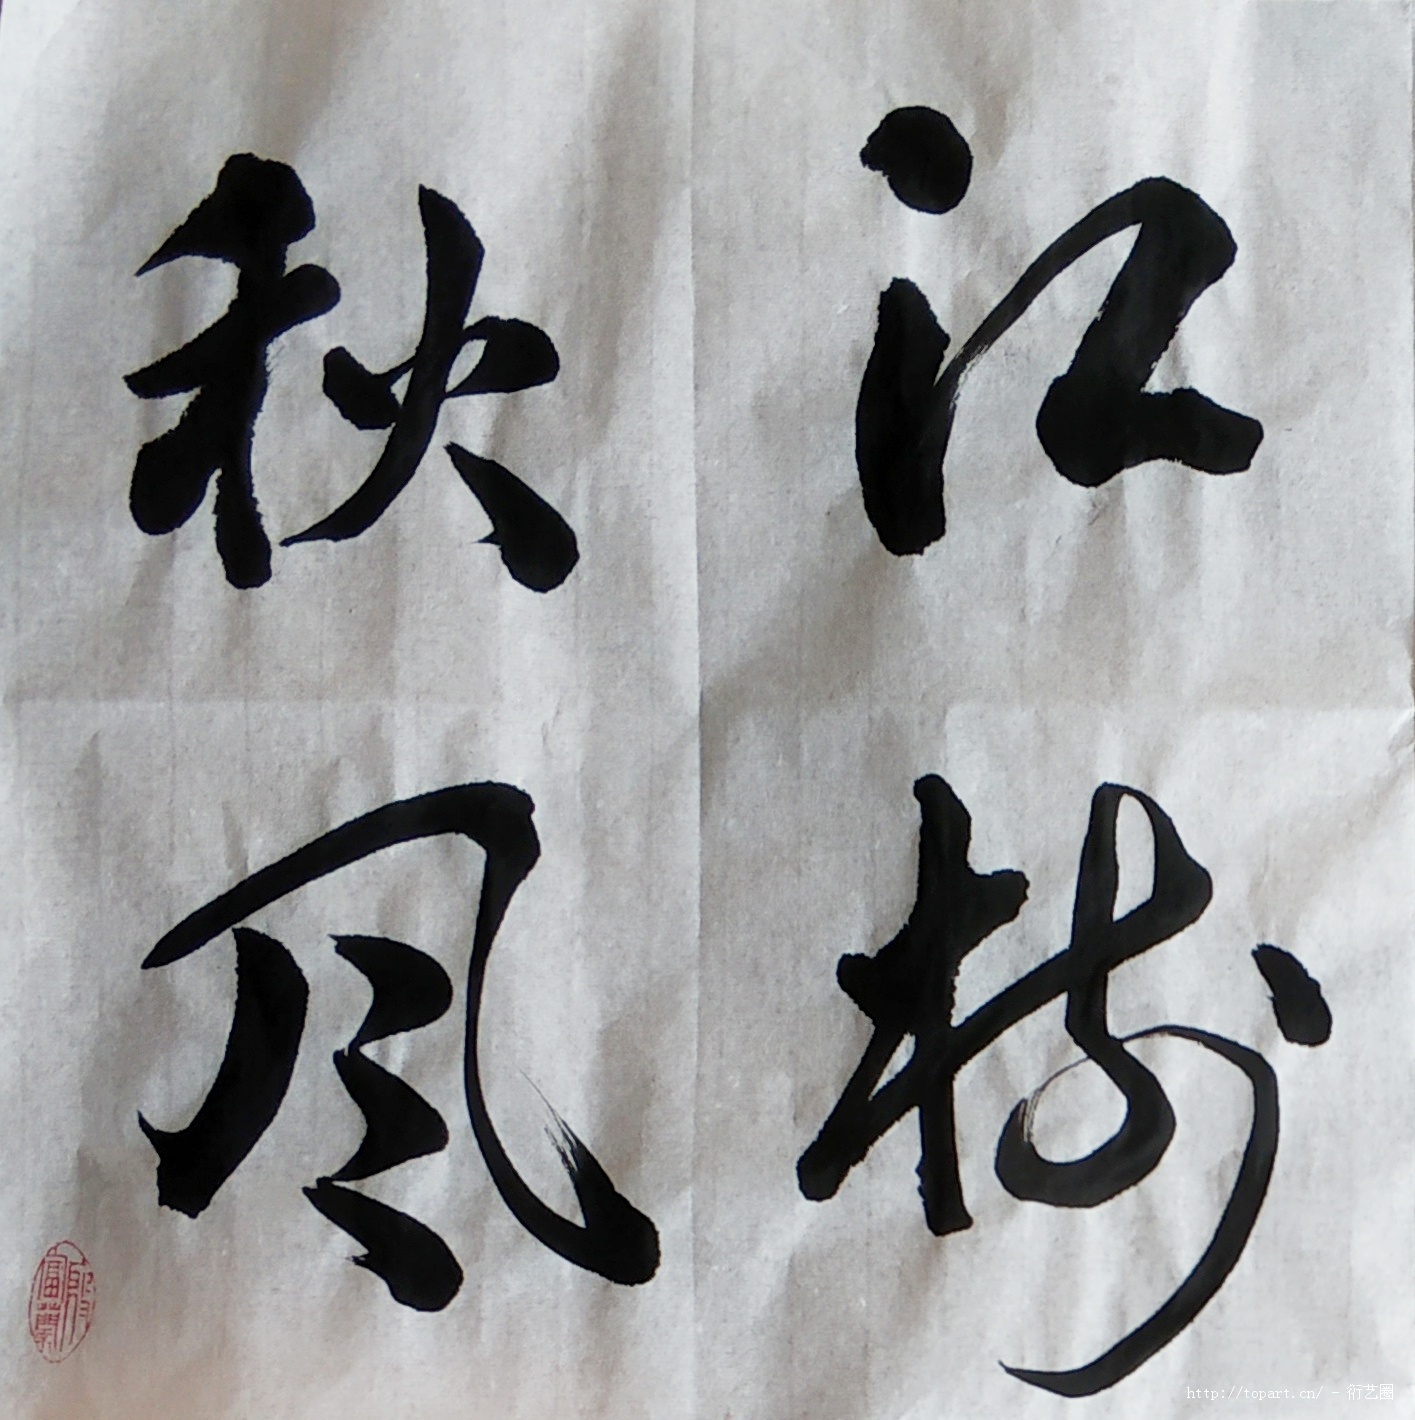 江树
秋风
http://topart.cn/ - 衍艺圈